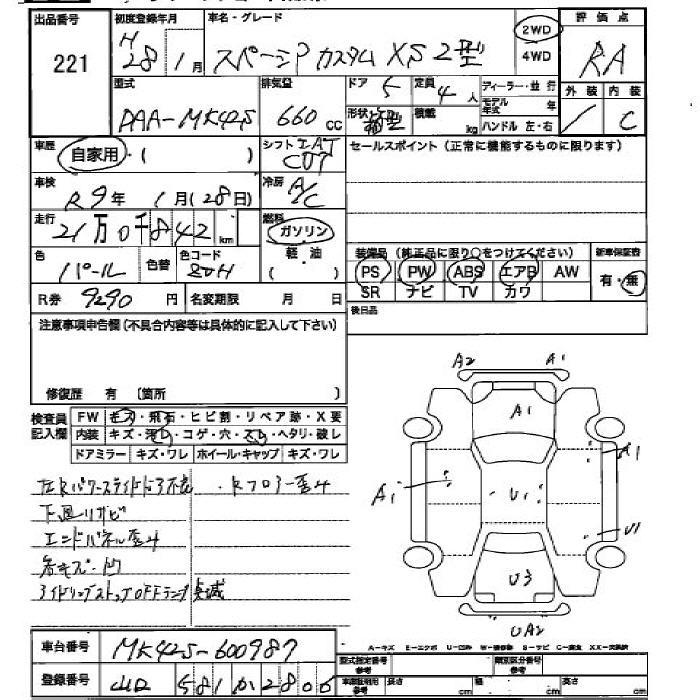 出品番号 初度登録年月 車名・グレード 2WD 評価点
221 H28年1月 スペーシア カスタム XS 2型 4WD RA
型式 排気量 ドア 5 定員 4人 ディーラー・並行 外装 内装
DAA-MK42S 660cc 形状 箱型 積載 kg モデル年式 年 C
ハンドル 左・右
車歴 自家用・( ) シフト CVT セールスポイント(正常に機能するものに限ります)
車検 R9年1月(28日) 冷房 A/C
走行 21万0千842km 燃料 ガソリン
軽油
( )
色 パール 色替 色コード 装備品(純正品に限り○をつけてください) 新車保証書
PS PW ABS エアB AW 有・無
SR ナビ TV カワ
R券 9290円 名変期限 月 日 後日品
注意事項申告欄(不具合内容等は具体的に記入して下さい)
修復歴 有 〔箇所 〕
検査員 FW キズ・飛石・ヒビ割・リペア跡・X要
記入欄 内装 キズ・汚レ・コゲ・穴・スレ・ヘタリ・破レ
ドアミラー キズ・ワレ ホイール・キャップ キズ・ワレ
左Rパワースライドドア不良 ・Rフロアー歪み
下廻りサビ
エンドパネル歪み
各キズ・凹
アイドリングストップOFFランプ点滅
A2 A1
A1
A1 U1 A1
U1
U3
UA2
車台番号 MK42S-600987
A-キズ E-エクボ U-凹み W-補修跡 S-サビ C-腐食 XX-交換済
登録番号 581 2806
型式指定番号 参考 類別区分番号 参考
車庫証明用 参考 長さ cm 幅 cm 高さ cm